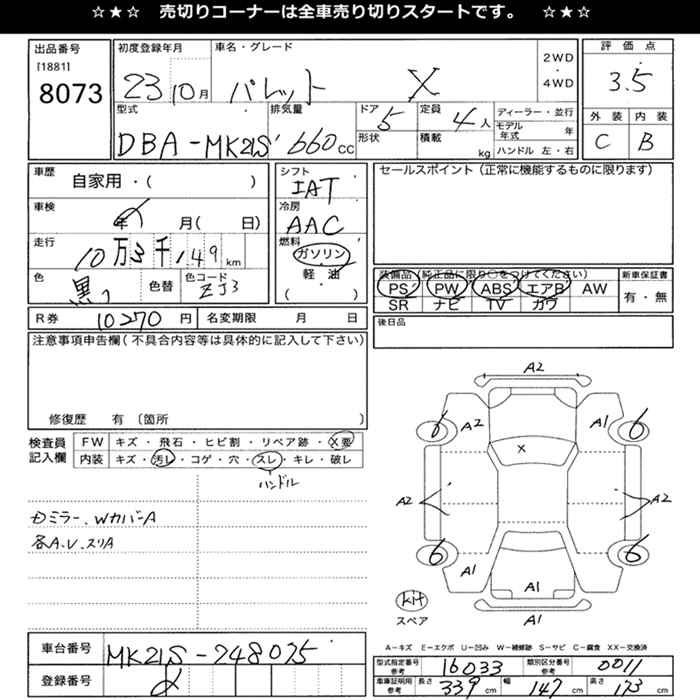 ☆★☆ 売切りコーナーは全車売り切りスタートです。 ☆★☆
出品番号 初度登録年月 車名・グレード 2WD・4WD 評価点
[1881]
8073 23 10月 パレット X 3.5
型式 排気量 ドア 5 定員 4人 ディーラー・並行 外装 内装
DBA-MK21S 660cc 形状 積載 kg モデル年式 年 C B
ハンドル 左・右
車歴 自家用・( ) シフト IAT セールスポイント (正常に機能するものに限ります)
車検 年 月( 日) 冷房 AAC
走行 10万3千149km 燃料 ガソリン・軽油・( )
色 黒 色替 色コード ZJ3
装備品 (純正品に限り○をつけてください) 新車保証書
PS PW ABS エアB AW 有・無
SR ナビ TV ガワ
R券 10270円 名変期限 月 日 後日品
注意事項申告欄(不具合内容等は具体的に記入して下さい)
修復歴 有 〔箇所 〕
検査員記入欄 FW キズ・飛石・ヒビ割・リペア跡・X要
内装 キズ・汚レ・コゲ・穴・スレ・キレ・破レ
ハンドル
ミラー、WカバーA
各A.U.スリA
A2
A2 A1
6 6
X
A2 A2
6 6
A1 A1
A1
kit
スペア
A-キズ E-エクボ U-凹み W-補修跡 S-サビ C-腐食 XX-交換済
車台番号 MK21S-748075
登録番号
型式指定番号 参考 16033 類別区分番号 参考 0011
車庫証明用 参考 長さ 339cm 幅 147cm 高さ 173cm